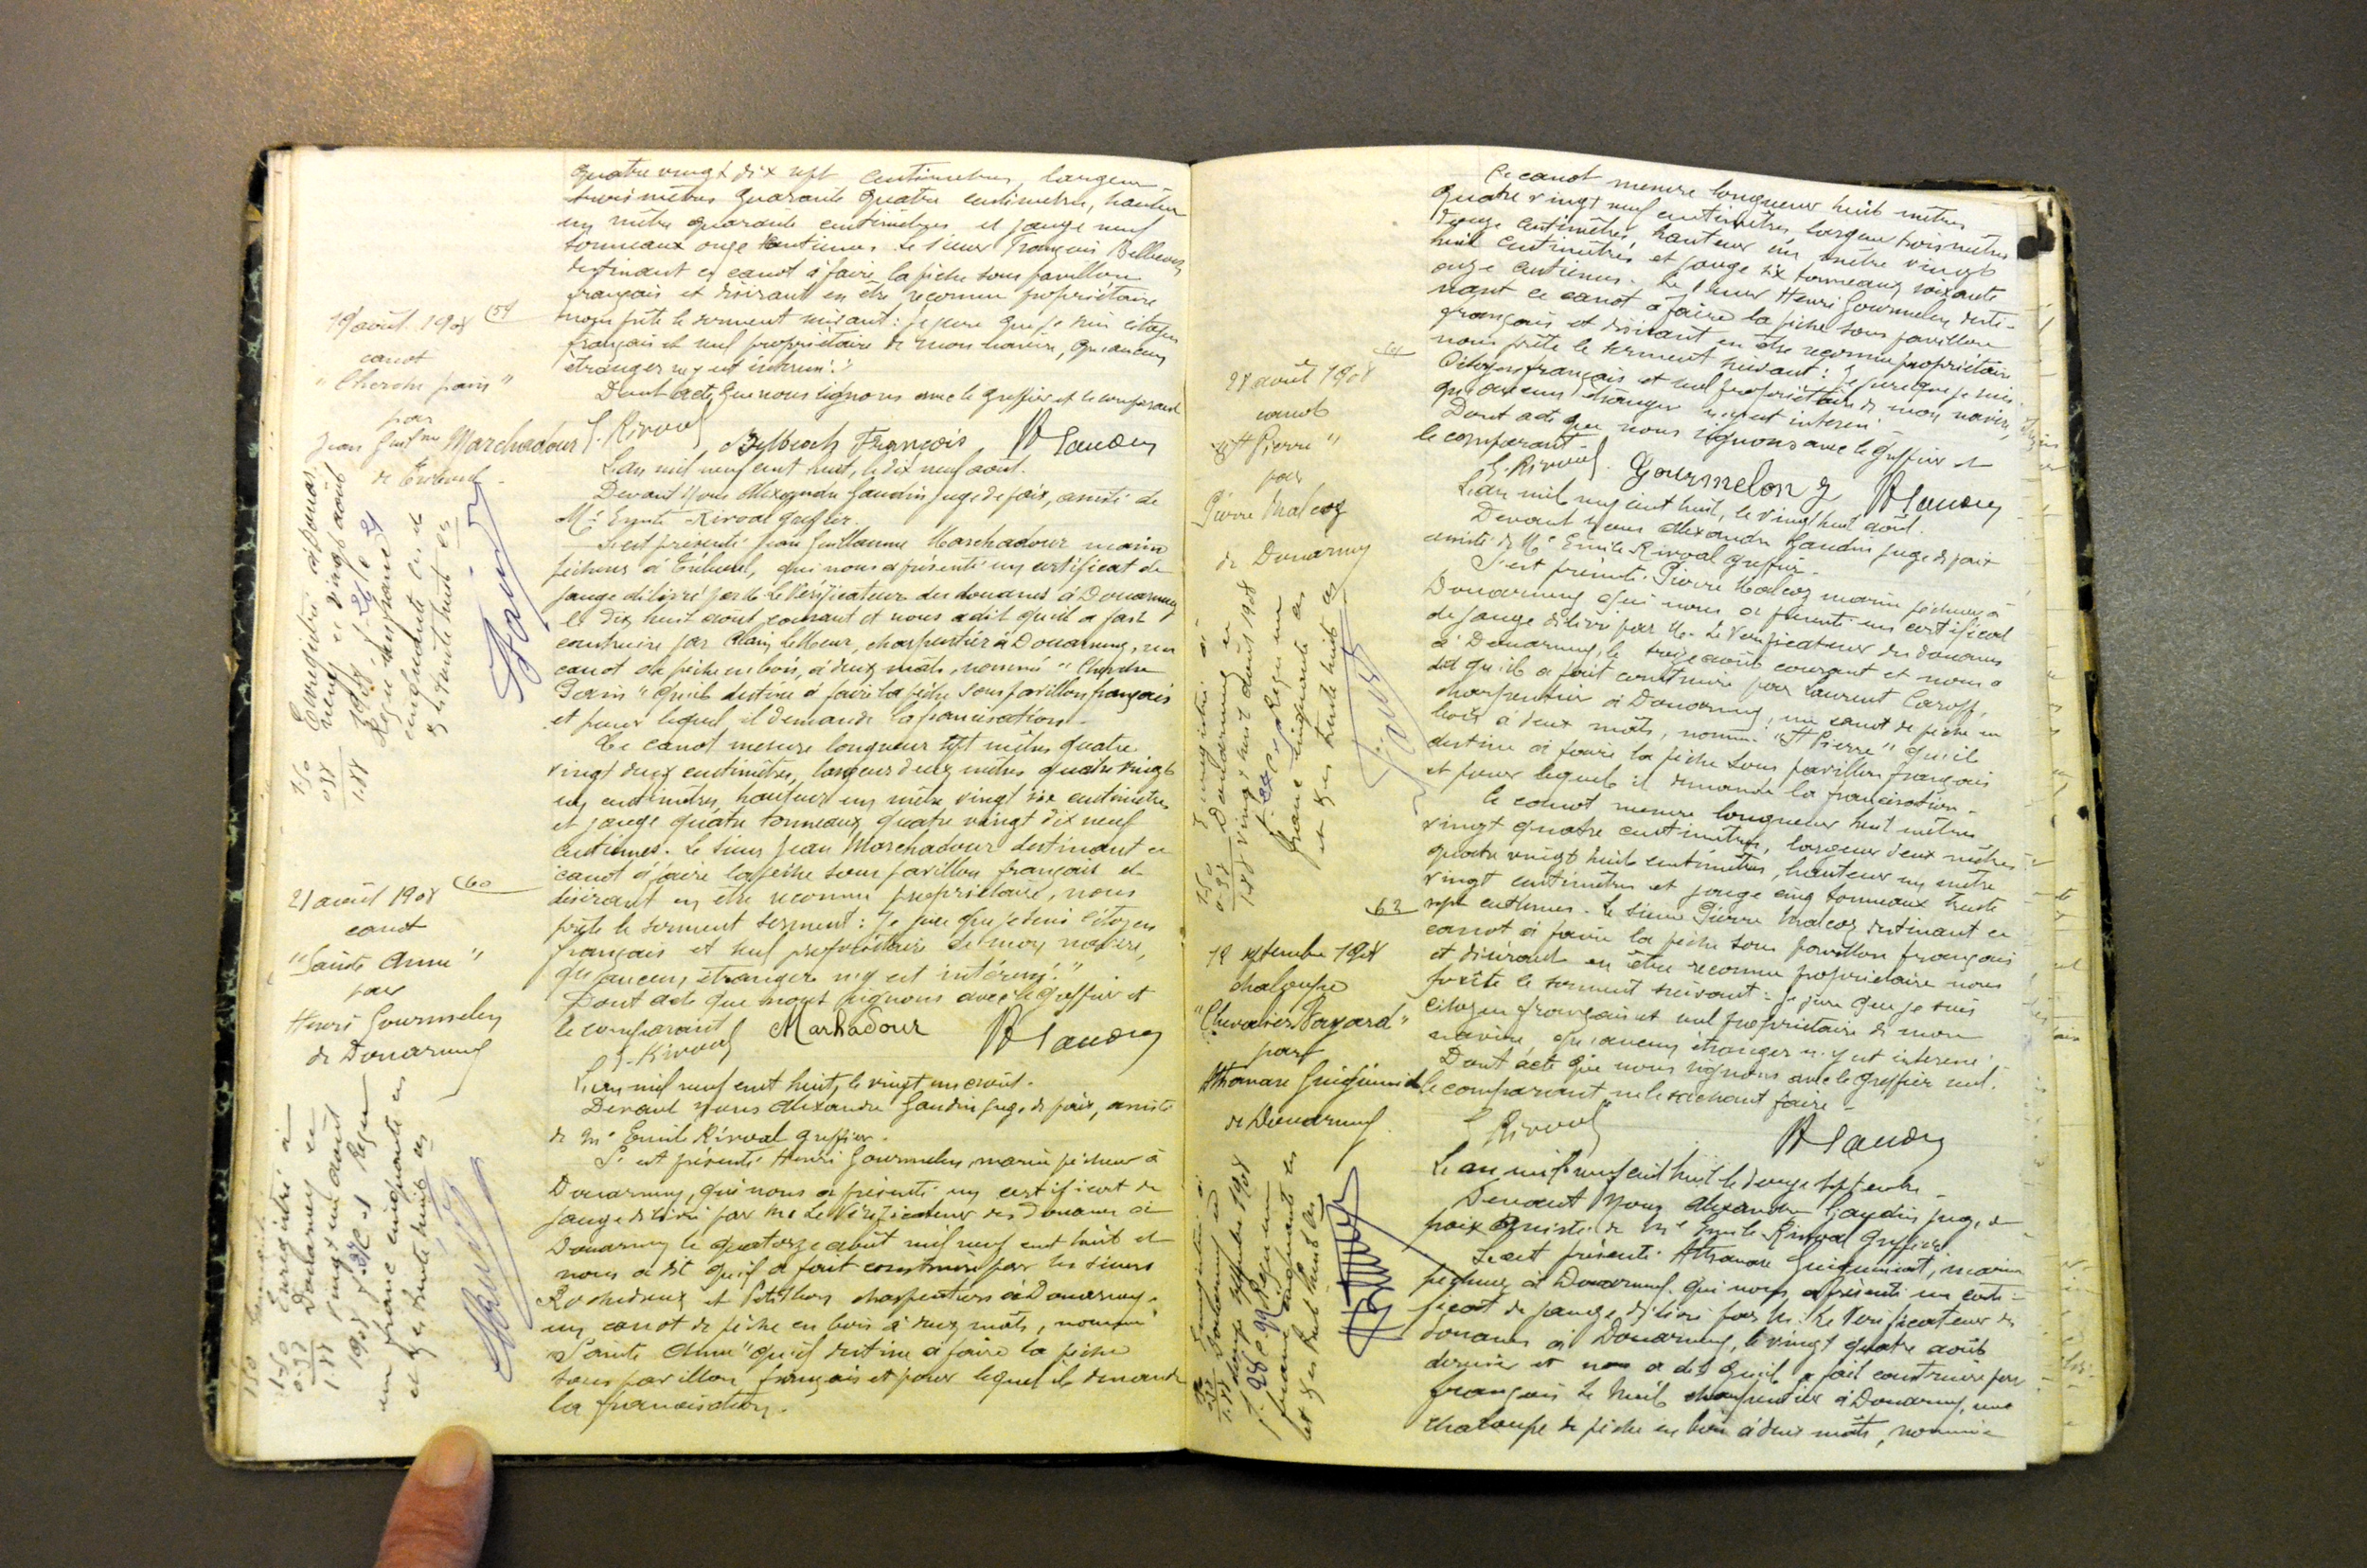 quatre vingt dix sept centimètres, largeur
trois mètres quarante quatre centimètres, hauteur
un mètre quarante centimètres et jauge neuf
tonneaux onze centièmes. Le sieur François Belbeoch
destinant ce canot à faire la pêche sous pavillon
français et désirant en être reconnu propriétaire
nous prête le serment suivant: Je jure que je suis citoyen
français et seul propriétaire de mon navire, qu'aucun
étranger n'y est intéressé."
Dont acte que nous signons avec le greffier et le comparant
E. Rivoal Belbeoch François A Gaudin
59
19 août 1908
canot
"Cherche pain"
par
Jean Guillme Marchadour
de Tréboul
Enregistré à Douarnenez
vingt août
1908
Reçu un franc
cinquante cs et
Xes trente huit cs
1.50
0.38
1.88
L'an mil neuf cent huit, le dix neuf août.
Devant Nous Alexandre Gaudin juge de paix, assisté de
Me Emile Rivoal greffier.
S'est présenté Jean Guillaume Marchadour marin
pêcheur à Tréboul, qui nous a présenté un certificat de
jauge délivré par M. Le Vérificateur des douanes à Douarnenez
le dix huit août courant et nous a dit qu'il a fait
construire par Alain charpentier à Douarnenez, un
canot de pêche en bois, à deux mats, nommé "Cherche
Pain" qu'il destine à faire la pêche sous pavillon français
et pour lequel il demande la francisation.
Ce canot mesure longueur sept mètres quatre
vingt deux centimètres, largeur deux mètres quatre vingt
un centimètres, hauteur un mètre vingt six centimètres
et jauge quatre tonneaux quatre vingt dix neuf
centièmes. Le sieur Jean Marchadour destinant ce
canot à faire la pêche sous pavillon français et
désirant en être reconnu propriétaire, nous
prête le serment serment: Je jure que je suis citoyen
français et seul propriétaire de mon navire,
qu'aucun étranger n'y est intéressé."
Dont acte que nous signons avec le greffier et
le comparant
E. Rivoal Marhadour A Gaudin
60
21 août 1908
canot
"Sainte Anne"
par
Henri Gourmelen
de Douarnenez
Enregistré à
Douarnenez le
vingt un août
1908 Reçu
un franc cinquante cs
et Xes trente huit cs
1.50
0.38
1.88
L'an mil neuf cent huit, le vingt un août.
Devant Nous Alexandre Gaudin juge de paix, assisté
de Me Emile Rivoal greffier.
S'est présenté Henri Gourmelen, marin pêcheur à
Douarnenez, qui nous a présenté un certificat de
jauge délivré par Mr Le Vérificateur des Douanes à
Douarnenez le quatorze août mil neuf cent huit et
nous a dit qu'il a fait construire par les sieurs
et Petitbon charpentiers à Douarnenez,
un canot de pêche en bois à deux mâts, nommé
"Sainte Anne" qu'il destine à faire la pêche
sous pavillon français et pour lequel il demande
la francisation.
Ce canot mesure longueur huit mètres
quatre vingt neuf centimètres, largeur trois mètres
centimètres, hauteur un mètre vingt
huit centimètres et jauge six tonneaux soixante
onze centièmes. Le sieur Henri Gourmelen desti-
nant ce canot à faire la pêche sous pavillon
français et désirant en être reconnu propriétaire
nous prête le serment suivant: Je jure que je suis
Citoyen français et seul propriétaire de mon navire,
qu'aucun étranger n'y est intéressé
Dont acte que nous signons avec le greffier et
le comparant.
E. Rivoal Gourmelon A Gaudin
28 août 1908
canot
"St Pierre"
par
Pierre Malcoz
de Douarnenez
Enregistré à
Douarnenez le
vingt huit août 1908
Reçu un
franc cinquante cs
et Xes trente huit cs
1.50
0.38
1.88
L'an mil neuf cent huit, le vingt huit août.
Devant Nous Alexandre Gaudin juge de paix
assisté de Me Emile Rivoal greffier.
S'est présenté Pierre Malcoz marin pêcheur à
Douarnenez qui nous a présenté un certificat
de jauge délivré par M. Le Vérificateur des douanes
à Douarnenez, le treize août courant et nous a
dit qu'il a fait construire par Laurent Caroff,
charpentier à Douarnenez, un canot de pêche en
bois à deux mâts, nommé "St Pierre" qu'il
destine à faire la pêche sous pavillon français
et pour lequel il demande la francisation.
Ce canot mesure longueur huit mètres
vingt quatre centimètres, largeur deux mètres
quatre vingt huit centimètres, hauteur un mètre
vingt centimètres et jauge cinq tonneaux trente
sept centièmes. Le sieur Pierre Malcoz destinant ce
canot à faire la pêche sous pavillon français
et désirant en être reconnu propriétaire nous
prête le serment suivant: Je jure que je suis
citoyen français et seul propriétaire de mon
navire, qu'aucun étranger n'y est intéressé.
Dont acte que nous signons avec le greffier seul.
le comparant ne le sachant faire.
E Rivoal A Gaudin
62
12 septembre 1908
chaloupe
"Chevalier Bayard"
par
Athanase
de Douarnenez
Enregistré à
Douarnenez le
douze septembre 1908
Reçu un
franc cinquante cs
et Xes trente huit cs
1.88
L'an mil neuf cent huit le douze septembre.
Devant Nous Alexandre Gaudin juge de
paix assisté de Me Emile Rivoal greffier
S'est présenté Athanase marin
pêcheur à Douarnenez qui nous a présenté un certi-
ficat de jauge délivré par M. Le Vérificateur des
douanes à Douarnenez, le vingt quatre août
dernier et nous a dit qu'il a fait construire par
François charpentier à Douarnenez, une
chaloupe de pêche en bois à deux mâts, nommée